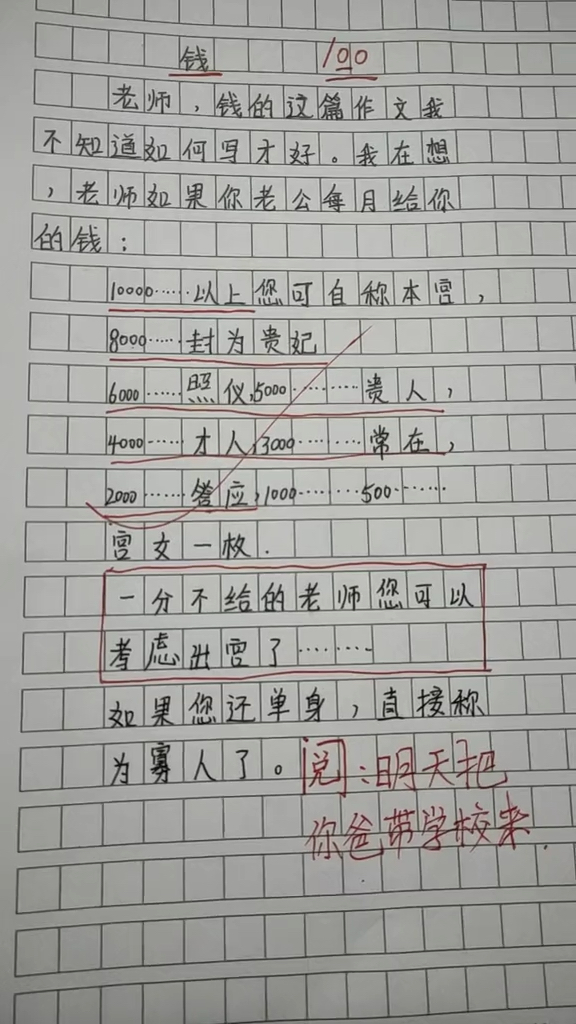 钱 100
老师，钱的这篇作文我
不知道如何写才好。我在想
，老师如果你老公每月给你
的钱：
10000……以上您可自称本宫，
8000……封为贵妃
6000……照仪,5000………贵人，
4000……才人,3000………常在，
2000……答应,1000………500……
宫女一枚.
一分不给的老师您可以
考虑出宫了………
如果您还单身，直接称
为寡人了。阅:明天把
你爸带学校来.